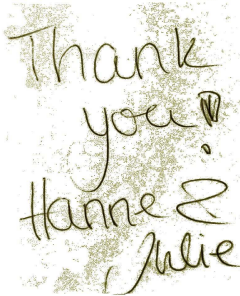 Thank
you!
Hanne &
Julie